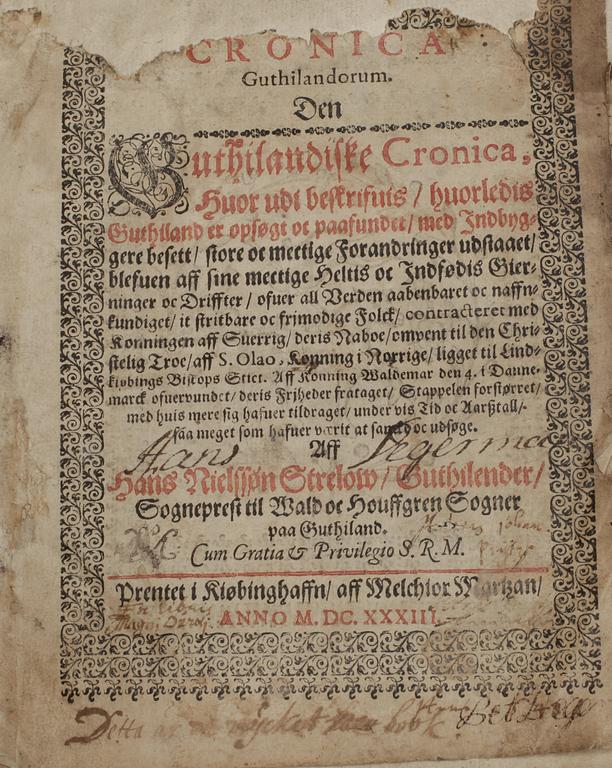 CRONICA
Guthilandorum.
Den
Guthilandiske Cronica,
Huor udi beskrifuis / huorledis
Guthiland er opsøgt oc paafundet / med Indbyg-
gere besett / store oc mectige Forandringer udstaaet /
blefuen aff sine mectige Heltis oc Indfødis Gier-
ninger oc Driffter / ofuer all Verden aabenbaret oc naffn-
kundiget / it stritbare oc frjmodige Folck / contracteret med
Konningen aff Suerrig / deris Naboe / omvent til den Chri-
stelig Troe / aff S. Olao, Konning i Norrige / ligget til Lind-
kiøbings Bistops Stict. Aff Konning Waldemar den 4. i Danne-
marck ofuervundet / deris Frjheder frataget / Stappelen forstørret /
med huis mere sig hafuer tildraget / under vis Tid oc Aarßtall /
saa meget som hafuer værit at samle oc udsøge.
Aff
Hans
Hans Nielssøn Strelow / Guthilender /
Sogneprest til Wald oc Houffgren Sogner
paa Guthiland.
Cum Gratia & Privilegio S. R. M.
Prentet i Kiøbinghaffn / aff Melchior Martzan /
ANNO M. DC. XXXIII.
Detta är mycket